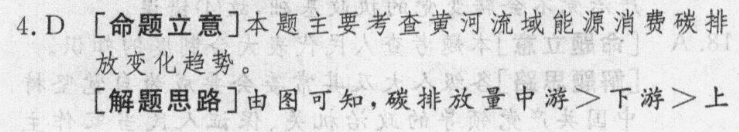 4. D [命题立意]本题主要考查黄河流域能源消费碳排
放变化趋势。
[解题思路]由图可知,碳排放量中游>下游>上